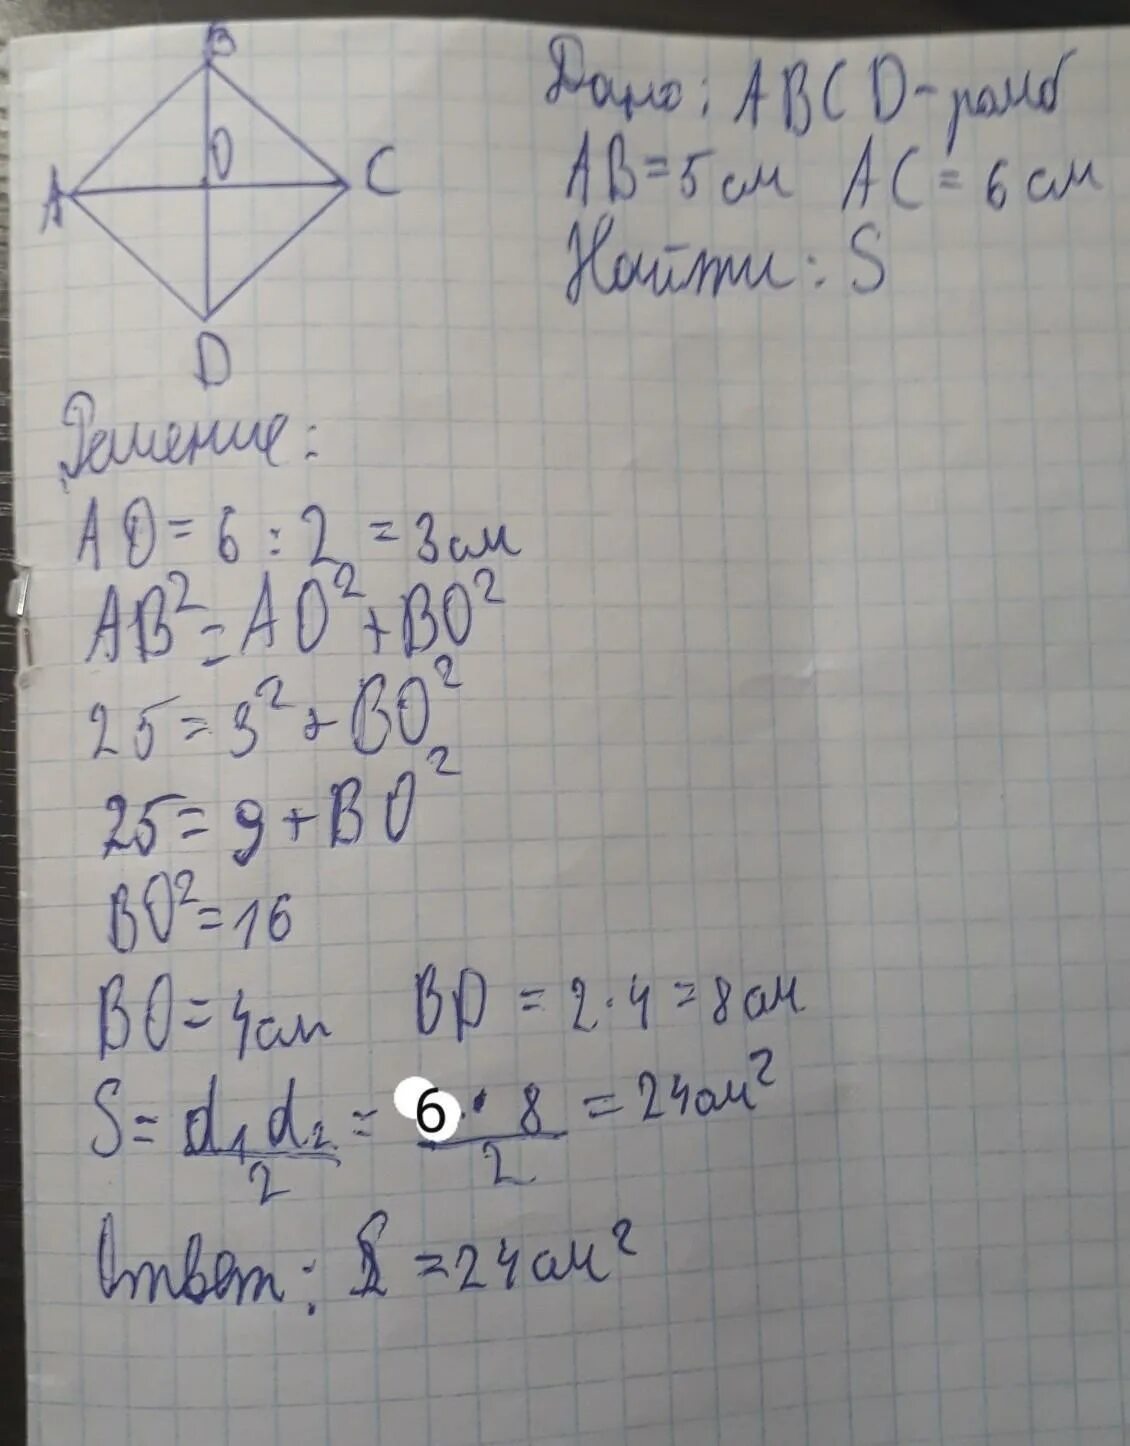 B
O
A
C
D
Дано: ABCD-ромб
AB=5см AC=6см
Найти: S
Решение:
AO=6:2=3см
AB²=AO²+BO²
25=3²+BO²
25=9+BO²
BO²=16
BO=4см BD=2·4=8см
S=d₁d₂/2=6·8/2=24см²
Ответ: S=24см²